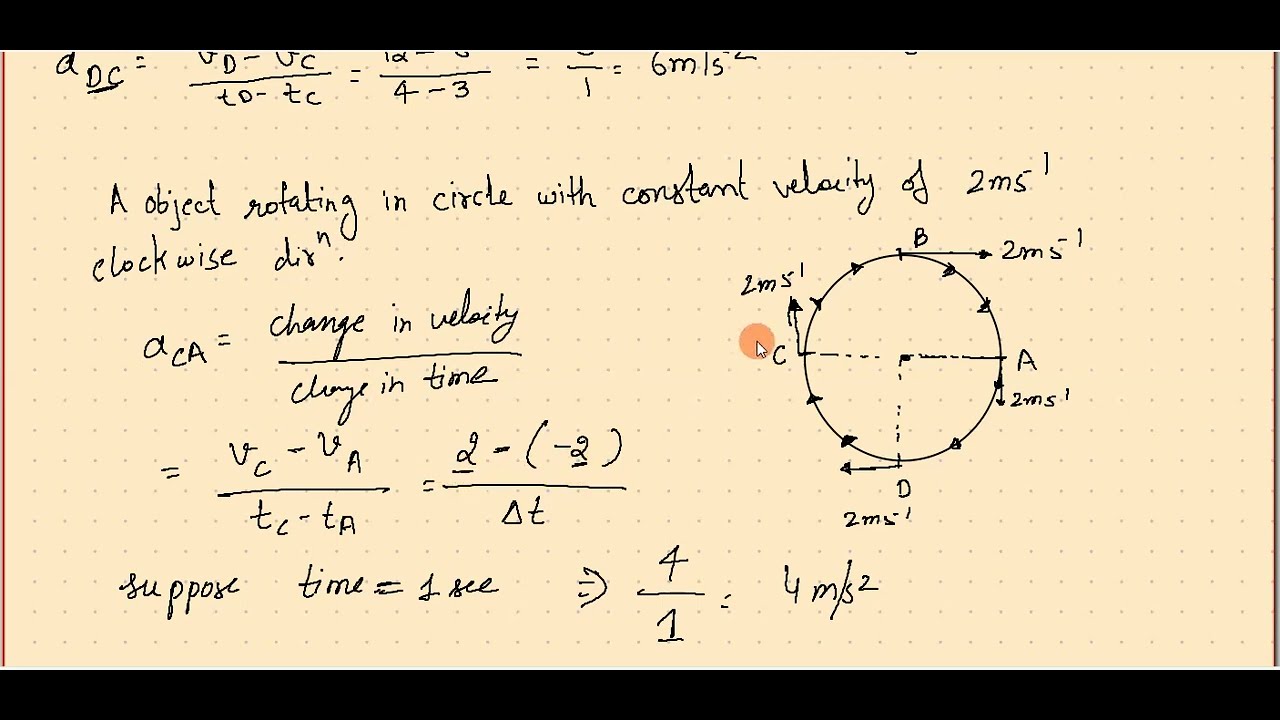 a_DC = v_D - v_C / t_D - t_C = 12 - / 4 - 3 = / 1 = 6m/s^-2
A object rotating in circle with constant velocity of 2ms^-1
clockwise dir^n.
a_CA = change in velocity / change in time
= v_C - v_A / t_C - t_A = 2 - (-2) / Δt
suppose time = 1 sec ⇒ 4 / 1 = 4 m/s^2
B 2ms^-1
2ms^-1
C A
2ms^-1
D
2ms^-1